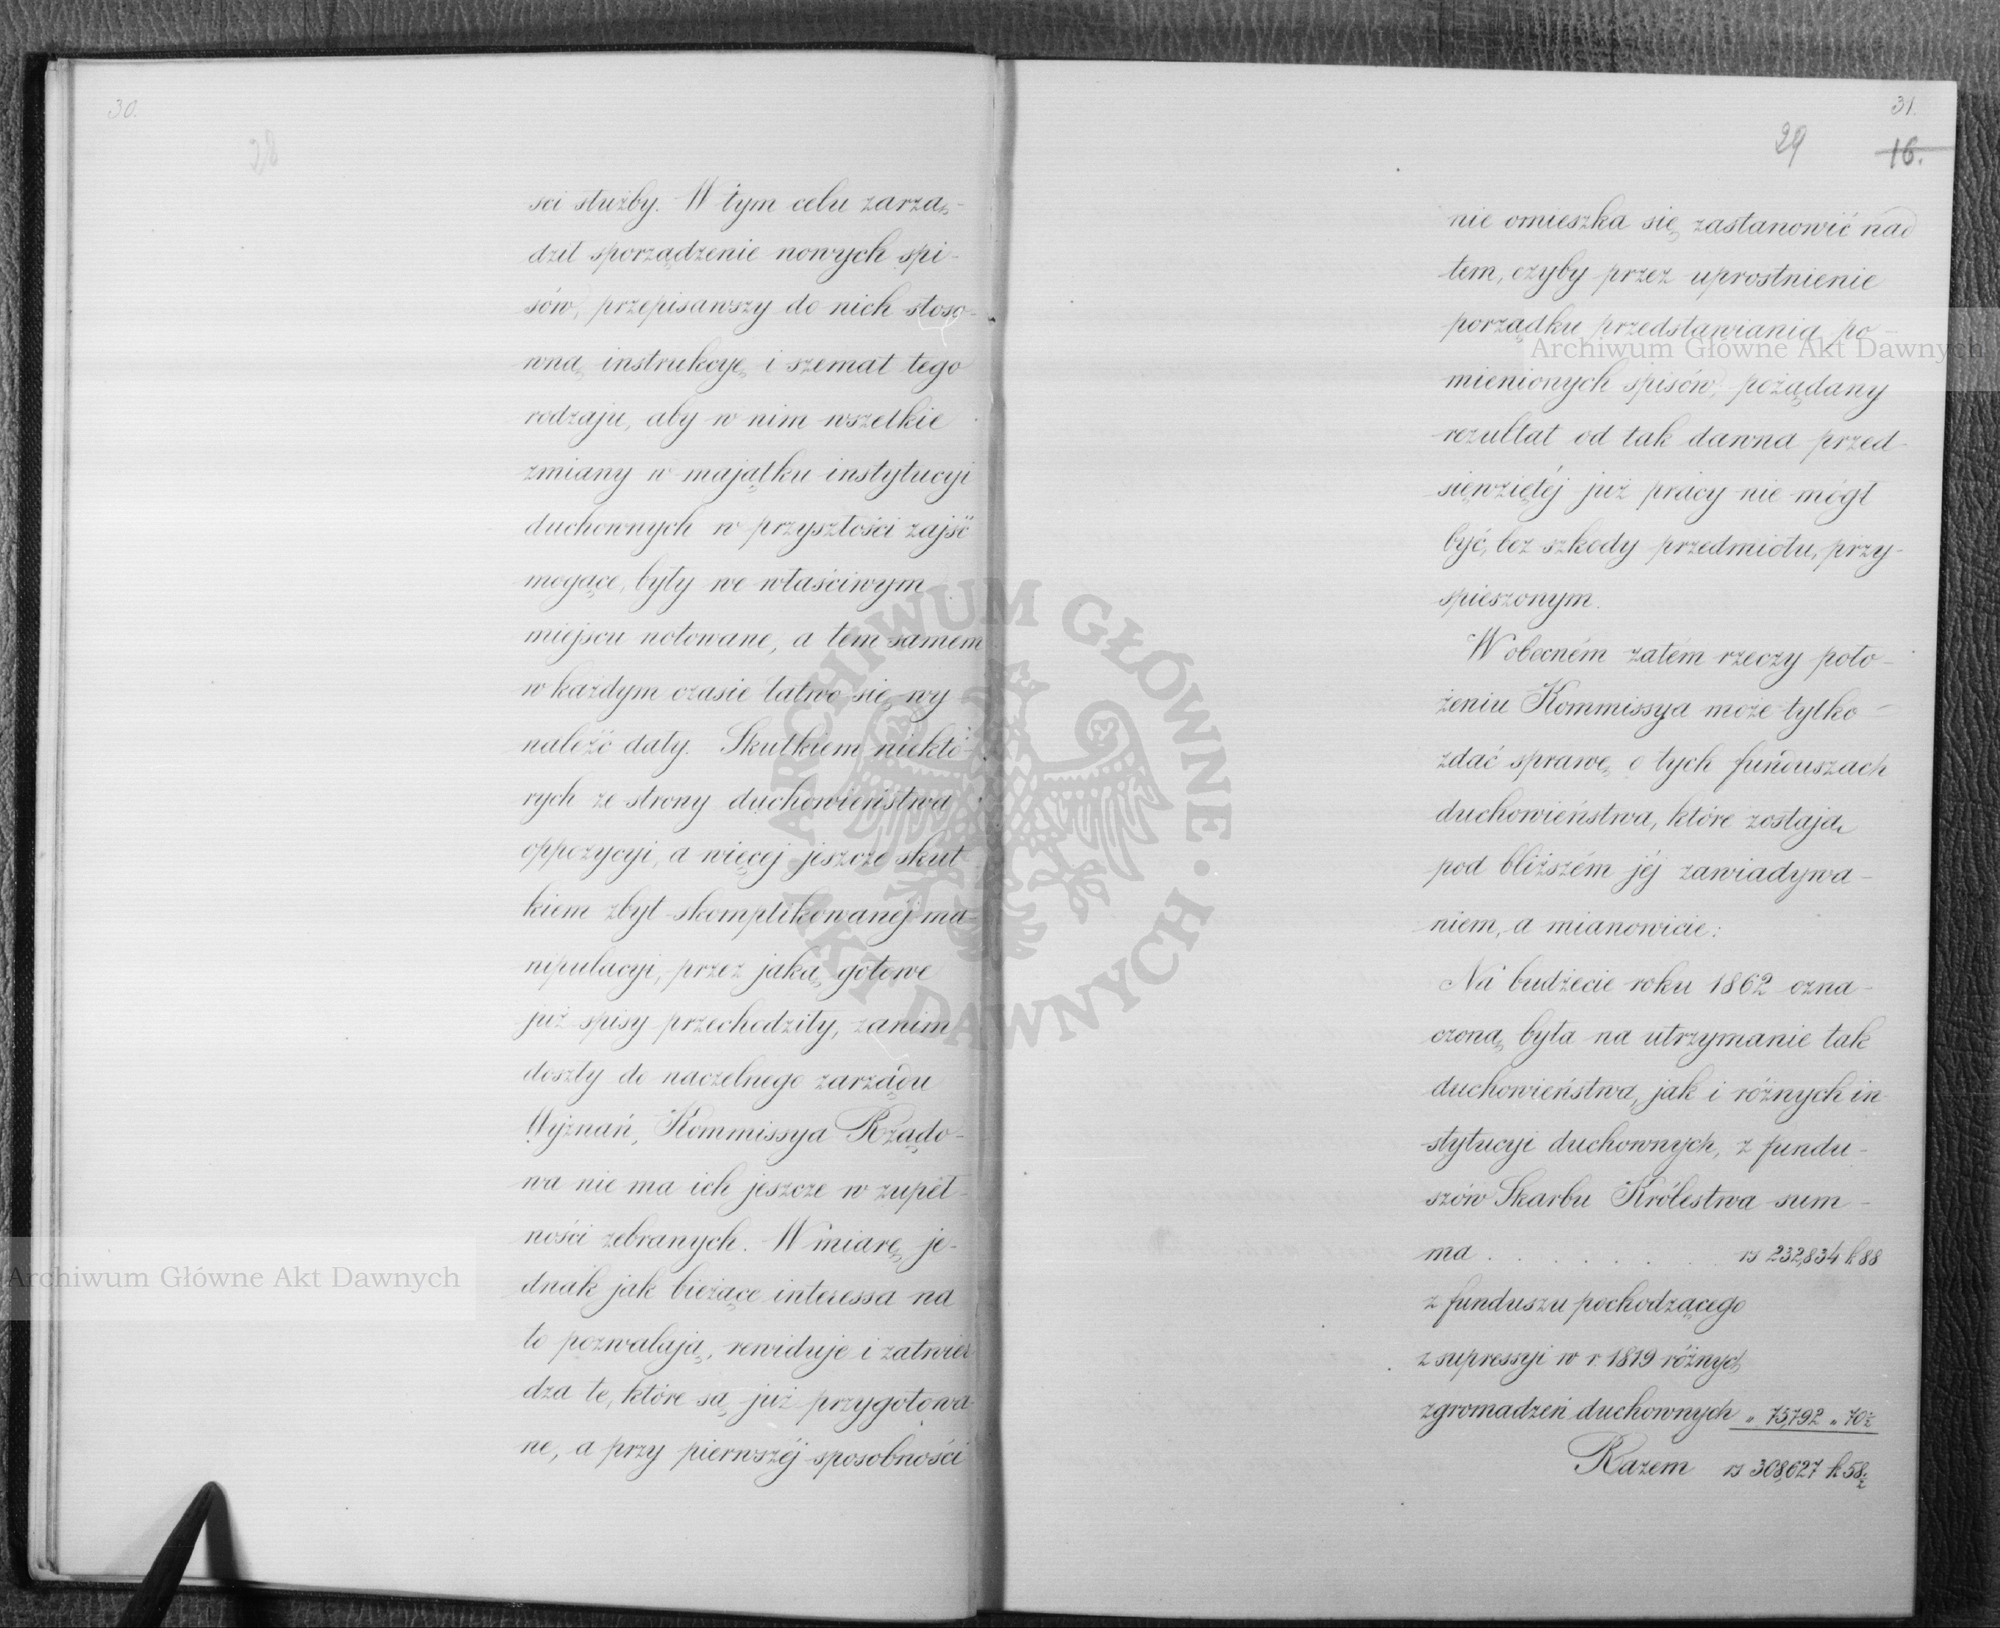 30.
28
ści służby. W tym celu zarzą-
dził sporządzenie nowych spi-
sów, przepisawszy do nich stoso-
wną instrukcyę i szemat tego
rodzaju, aby w nim wszelkie
zmiany w majątku instytucyi
duchownych w przyszłości zajść
mogące, były we właściwym
miejscu notowane, a tem samem
w każdym czasie łatwo się wy
naleźć dały. Skutkiem niektó-
rych ze strony duchowieństwa
oppozycyi, a więcej jeszcze skut
kiem zbyt skomplikowanéj ma-
nipulacyi, przez jaką gotowe
już spisy przechodziły, zanim
doszły do naczelnego zarządu
Wyznań, Kommissya Rządo-
wa nie ma ich jeszcze w zupeł-
ności zebranych. W miarę je-
dnak jak bieżące interessa na
to pozwalają, rewiduje i zatwier
dza te, które są już przygotowa-
ne, a przy pierwszéj sposobności
31.
29
16.
nie omieszka się zastanowić nad
tem, czyby przez uprostnienie
porządku przedstawiania po-
mienionych spisów, pożądany
rezultat od tak dawna przed-
sięwziętéj już pracy nie mógł
być, bez szkody przedmiotu, przy-
spieszonym.
W obecném zatém rzeczy poło-
żeniu Kommissya może tylko
zdać sprawę o tych funduszach
duchowieństwa, które zostają
pod bliższém jéj zawiadywa-
niem, a mianowicie:
Na budżecie roku 1862 ozna-
czoną była na utrzymanie tak
duchowieństwa, jak i różnych in
stytucyi duchownych, z fundu-
szów Skarbu Królestwa sum-
ma . . . . . . rs 232,834 k 88
z funduszu pochodzącego
z supressyi w r. 1819 różnych
zgromadzeń duchownych „ 75,792 „ 70½
Razem rs 308,627 k 58½
Archiwum Główne Akt Dawnych
Archiwum Główne Akt Dawnych
ARCHIWUM GŁÓWNE · AKT DAWNYCH ·